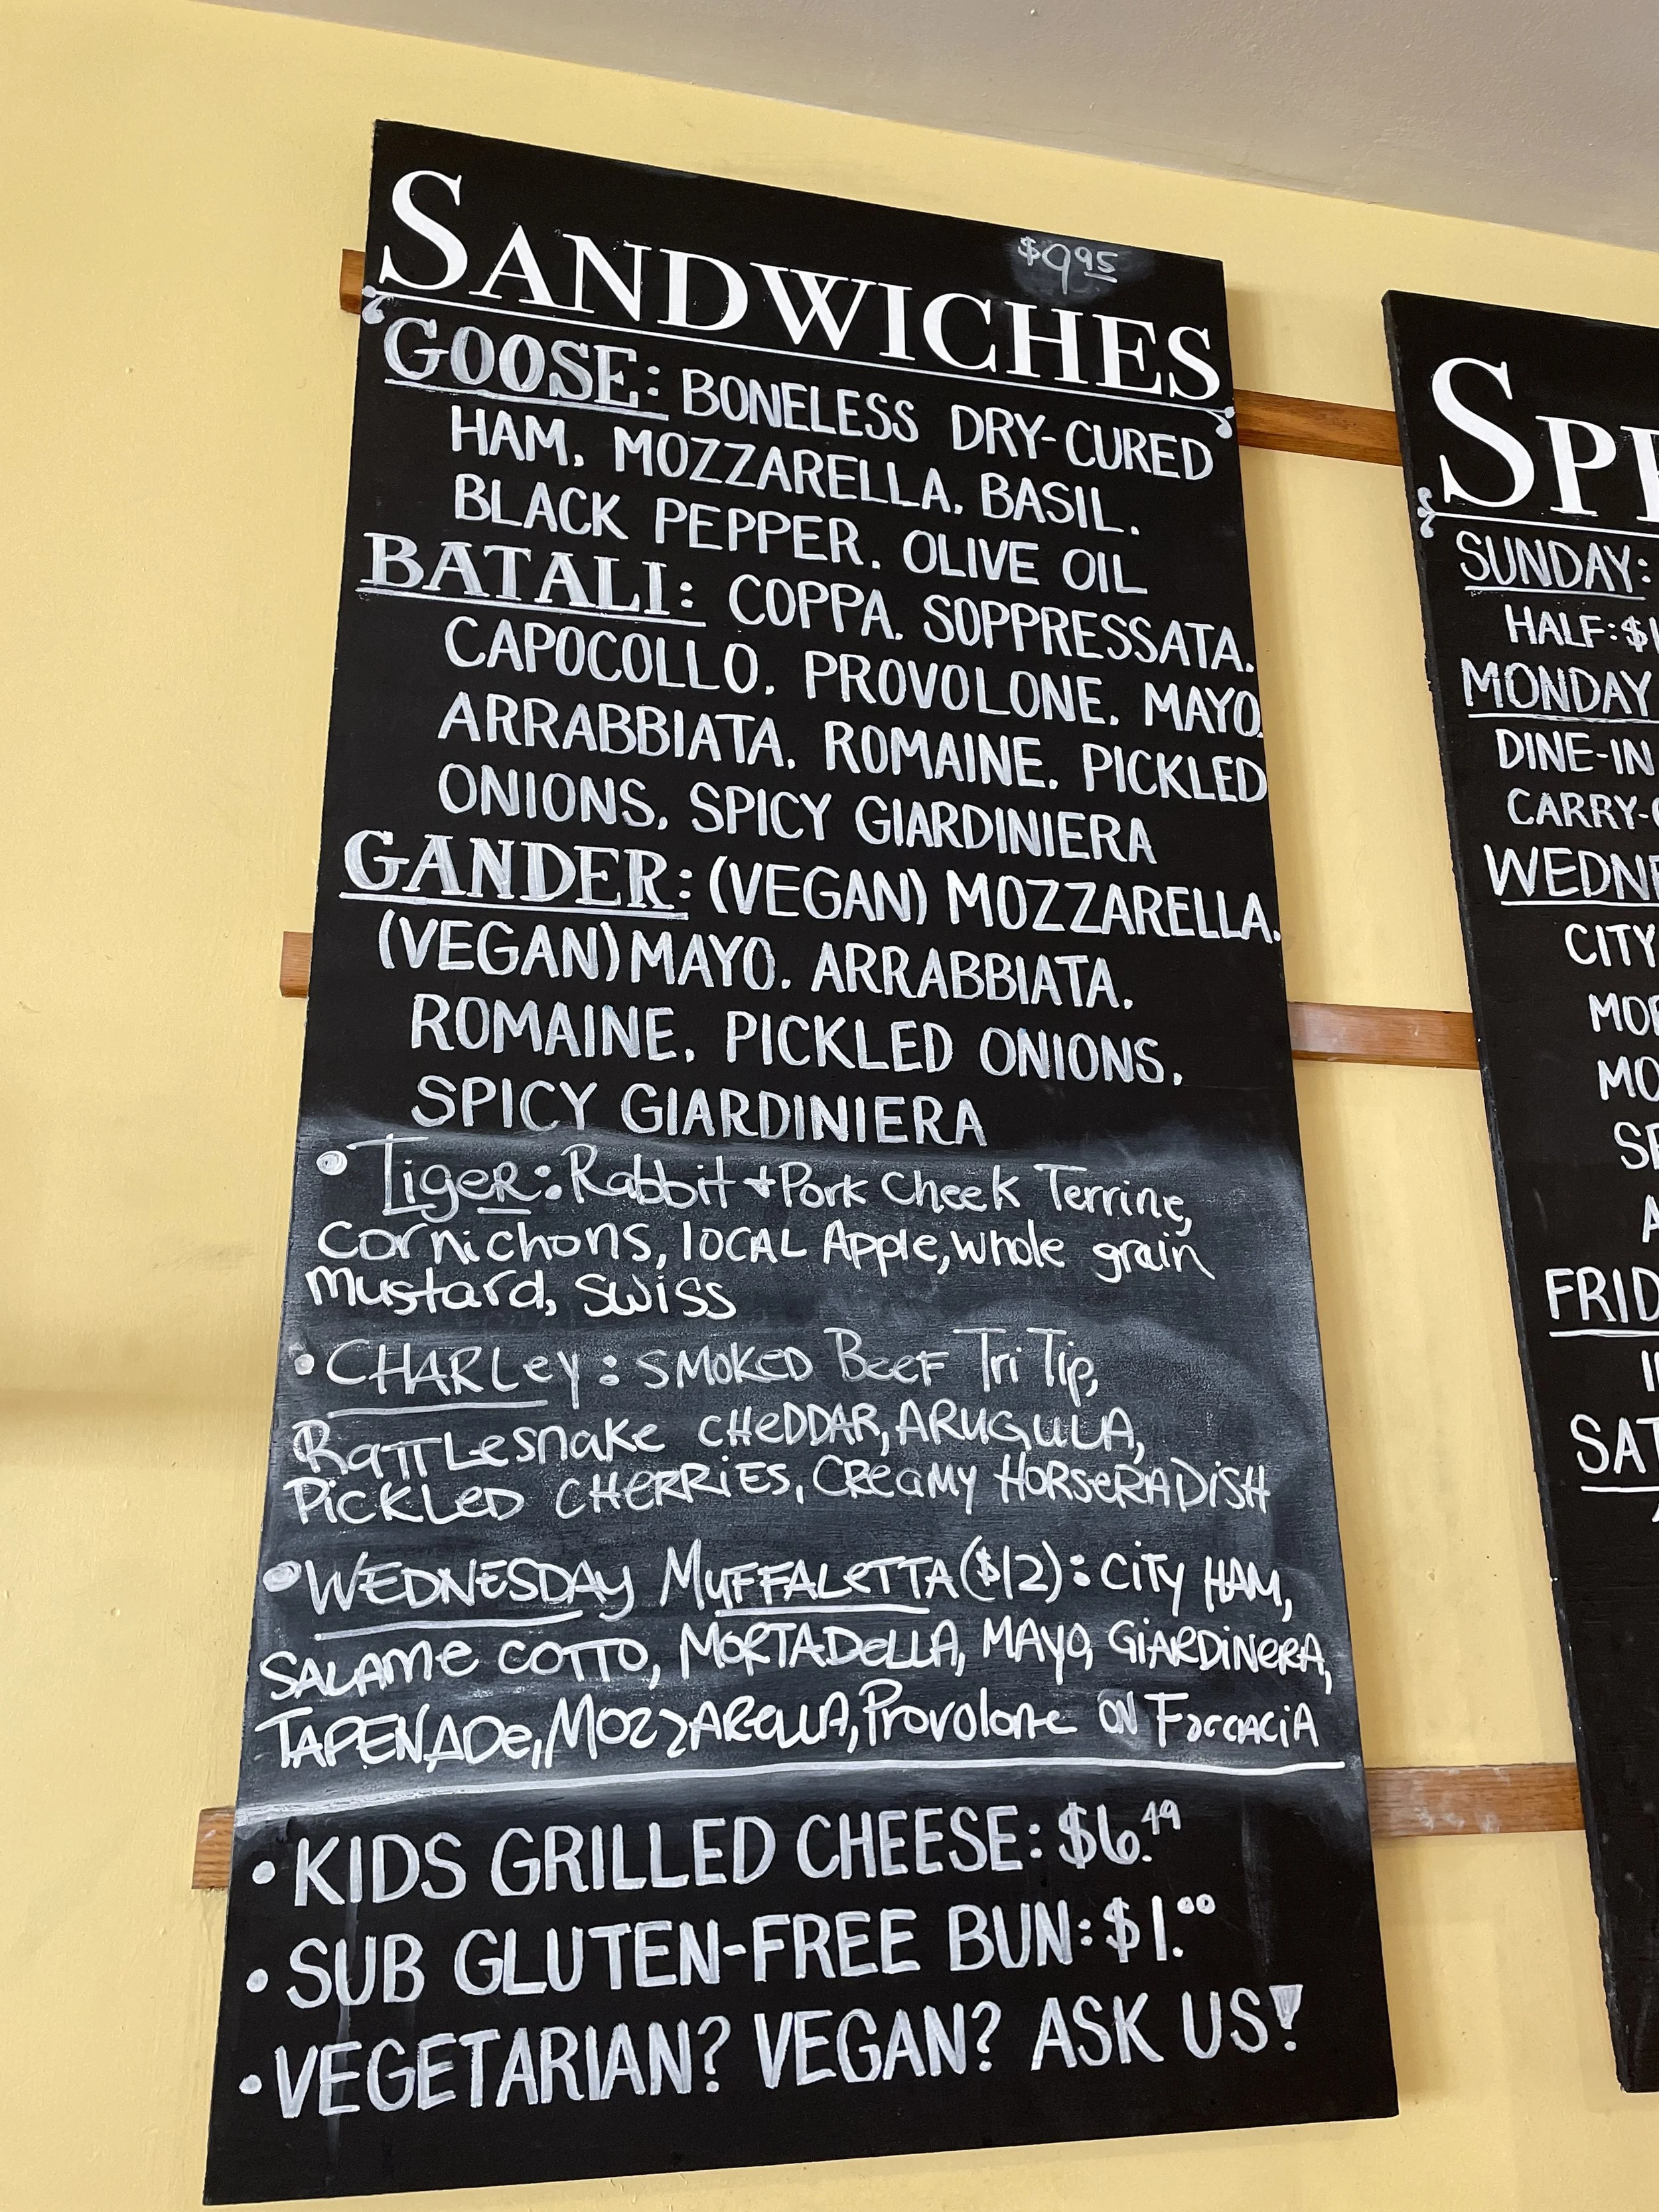 $9.95
SANDWICHES
GOOSE: BONELESS DRY-CURED
HAM, MOZZARELLA, BASIL,
BLACK PEPPER, OLIVE OIL
BATALI: COPPA, SOPPRESSATA,
CAPOCOLLO, PROVOLONE, MAYO,
ARRABBIATA, ROMAINE, PICKLED
ONIONS, SPICY GIARDINIERA
GANDER: (VEGAN) MOZZARELLA,
(VEGAN) MAYO, ARRABBIATA,
ROMAINE, PICKLED ONIONS,
SPICY GIARDINIERA
• Tiger: Rabbit + Pork Cheek Terrine,
Cornichons, local Apple, whole grain
mustard, swiss
• CHARLey: SMOKED BeeF Tri Tip,
RATTLesnake CHeDDAR, ARUGULA,
PiCKLeD CHeRRiES, CReamy HORSeRADiSH
• WEDNESDAy MuFFALeTTA ($12): CiTy HAM,
SALAMe COTTO, MORTADeLLA, MAyo, GiARDiNeRA,
TAPENADe, MozzAReLLA, Provolone ON FoccACiA
• KIDS GRILLED CHEESE: $6.49
• SUB GLUTEN-FREE BUN: $1.00
• VEGETARIAN? VEGAN? ASK US!
SPE
SUNDAY:
HALF: $1
MONDAY
DINE-IN
CARRY-
WEDNE
CITY
MOR
MO
FRID
SAT